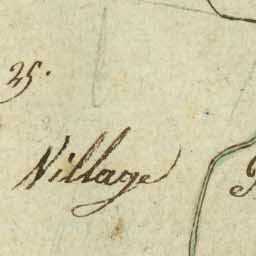 25.
Village